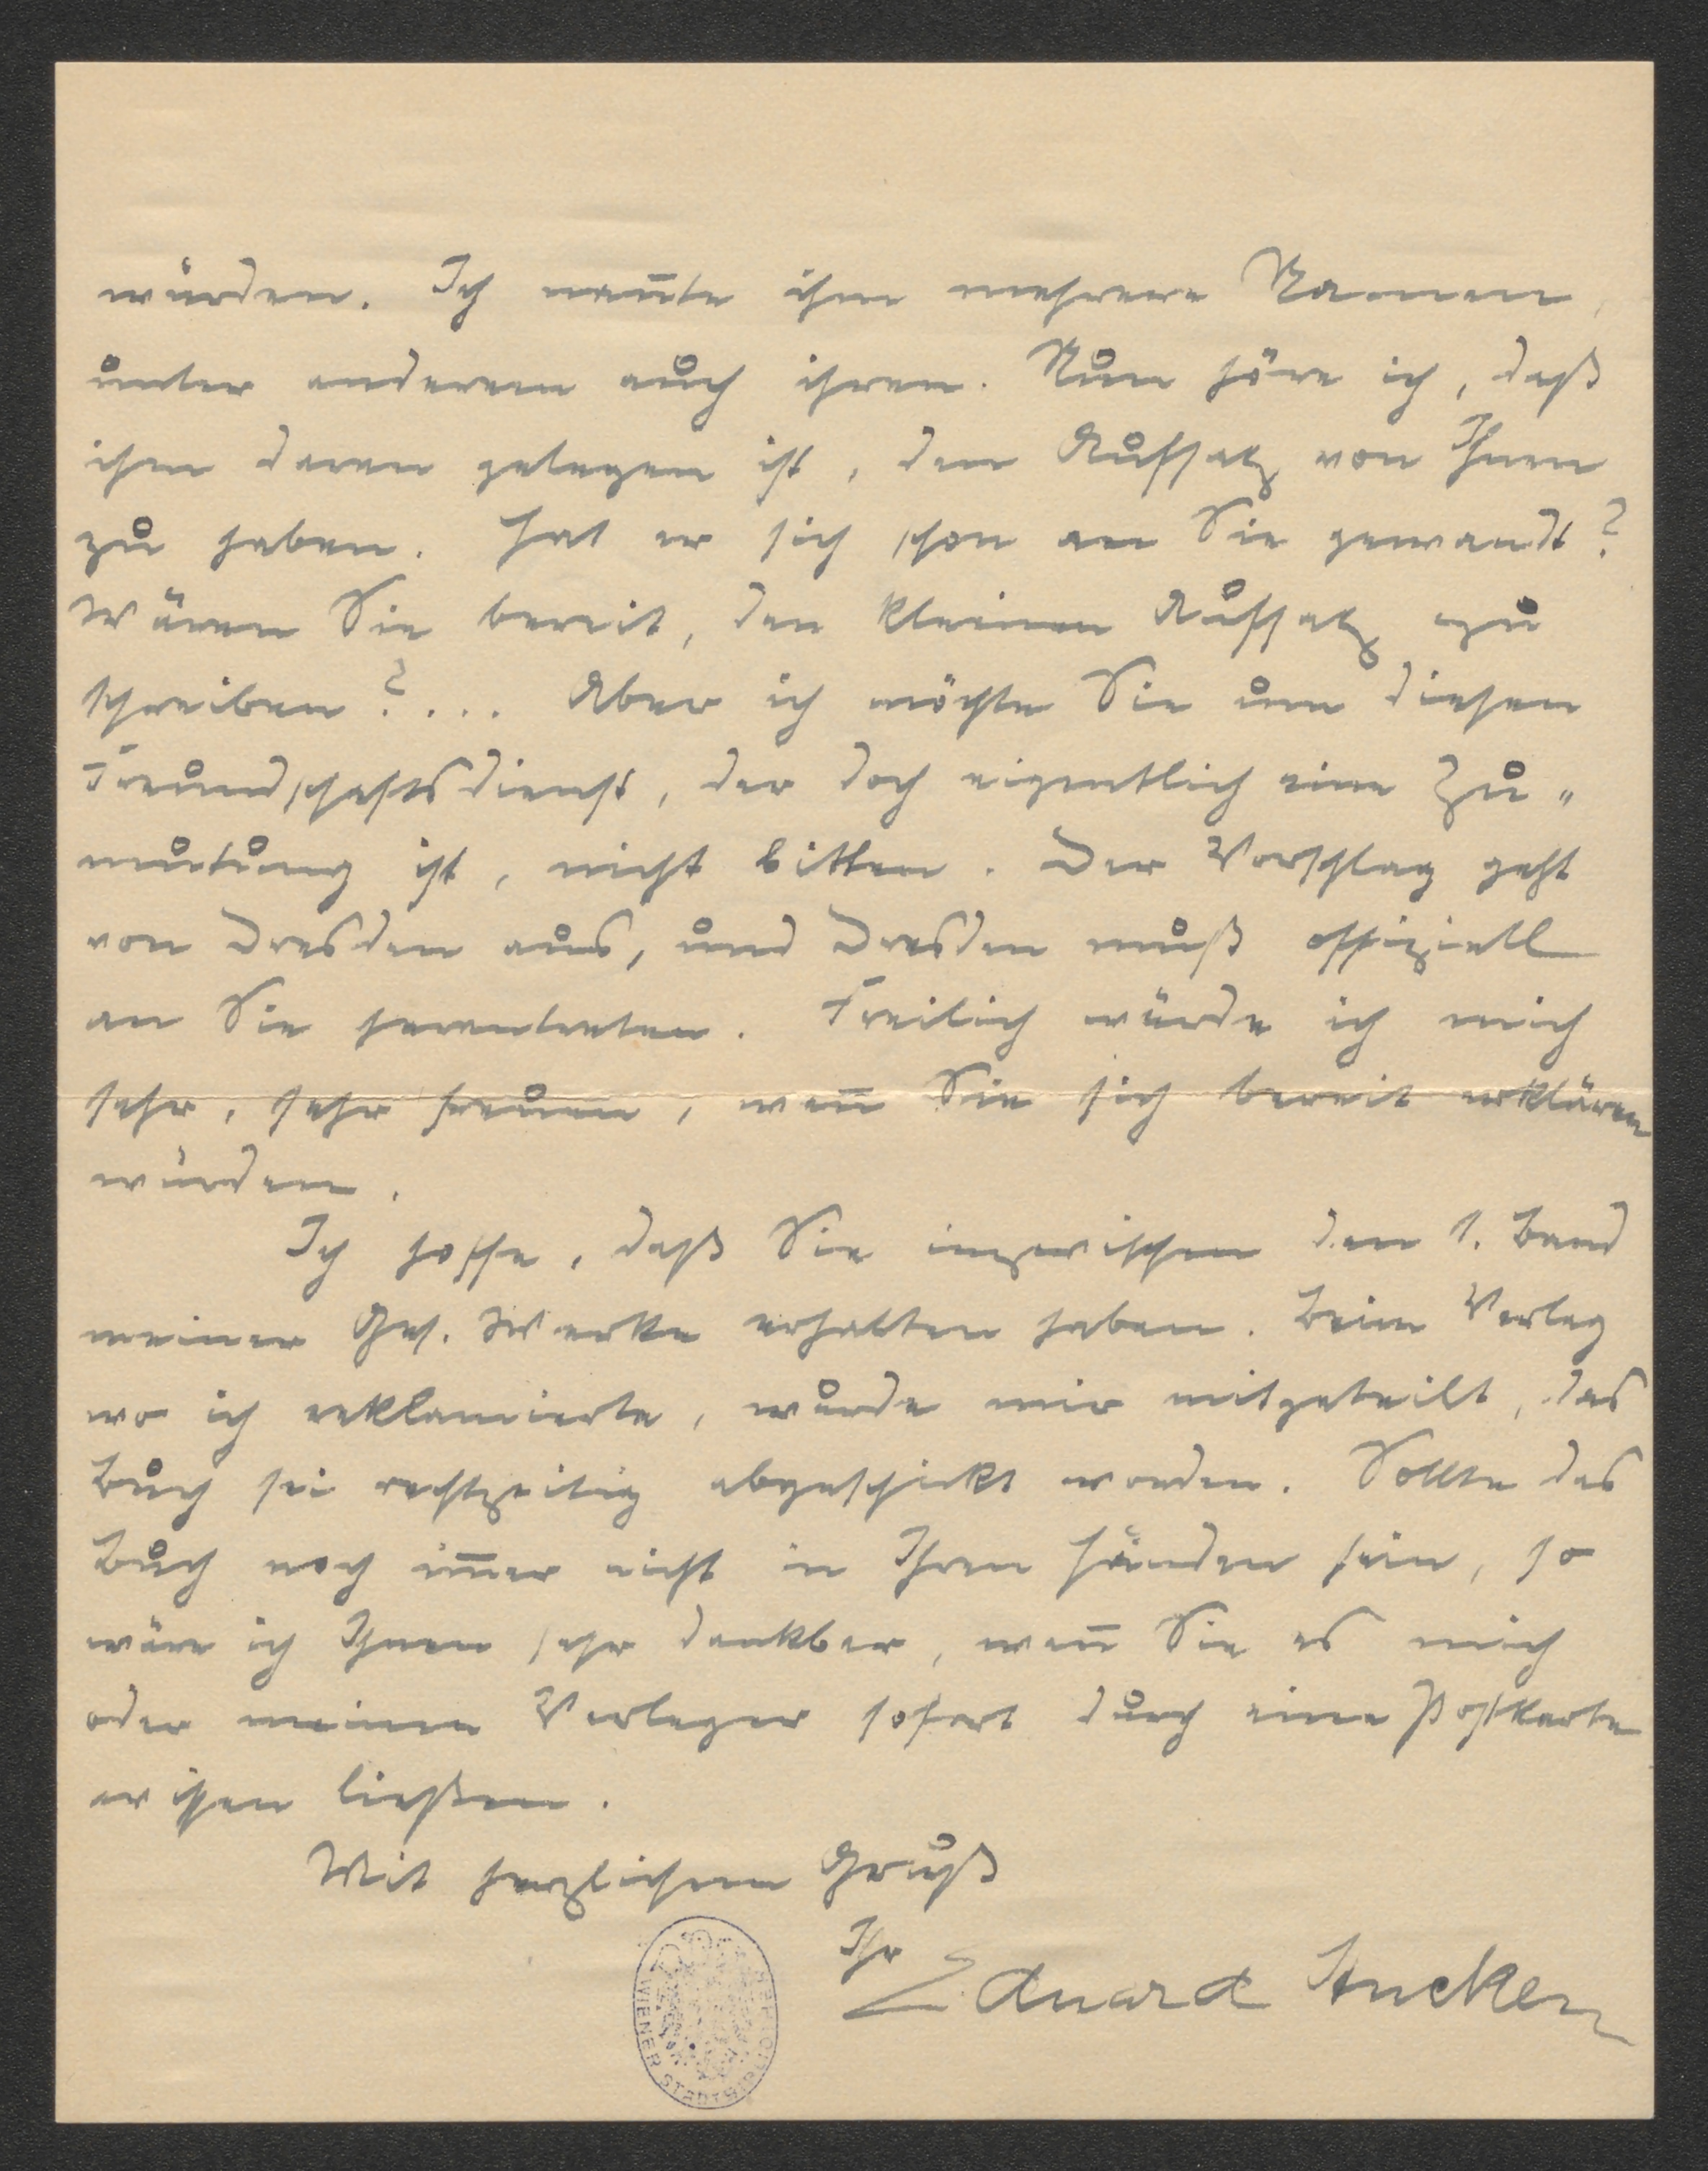 würden. Ich nan̄te ihm mehrere Namen,
unter anderem auch ihren. Nun höre ich, daß
ihm daran gelegen ist, den Aufsatz von Ihnen
zu haben. Hat er sich schon an Sie gewandt?
Wären Sie bereit, den kleinen Aufsatz zu
schreiben?... Aber ich möchte Sie um diesen
Freundschaftsdienst, der doch eigentlich eine Zu„
mutung ist, nicht bitten. Der Vorschlag geht
von Dresden aus, und Dresden muß offiziell
an Sie herantreten. Freilich würde ich mich
sehr, sehr freuen, wen̄ Sie sich bereit erklären
würden.
Ich hoffe, daß Sie inzwischen den 1. Band
meiner Ges. Werke erhalten haben. Beim Verlag
wo ich reklamierte, wurde mir mitgeteilt, das
Buch sei rechtzeitig abgeschickt worden. Sollte das
Buch noch im̄er nicht in Ihren Händen sein, so
wäre ich Ihnen sehr dankbar, wen̄ Sie es mich
oder meinen Verleger sofort durch eine Postkarte
wissen ließen.
Mit herzlichem Gruß
Ihr
Eduard Stucken
WIENER STADTBIBLIOTHEK